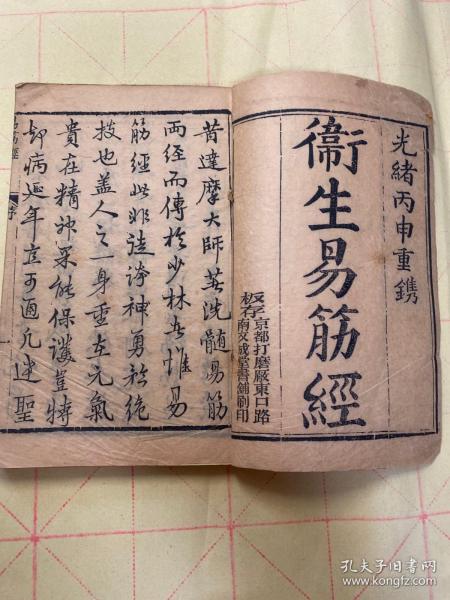 光緒丙申重鐫
衞生易筋經
板存京都打磨廠東口路
南文成堂書鋪刷印
昔達摩大師著洗髓易筋
兩經而傳於少林吾惟易
筋經此非誇神勇於絶
技也盖人之一身重在元氣
貴在精神果能保護豈特
却病延年可通凡達聖
筋經
序
孔夫子旧书网
www.kongfz.com